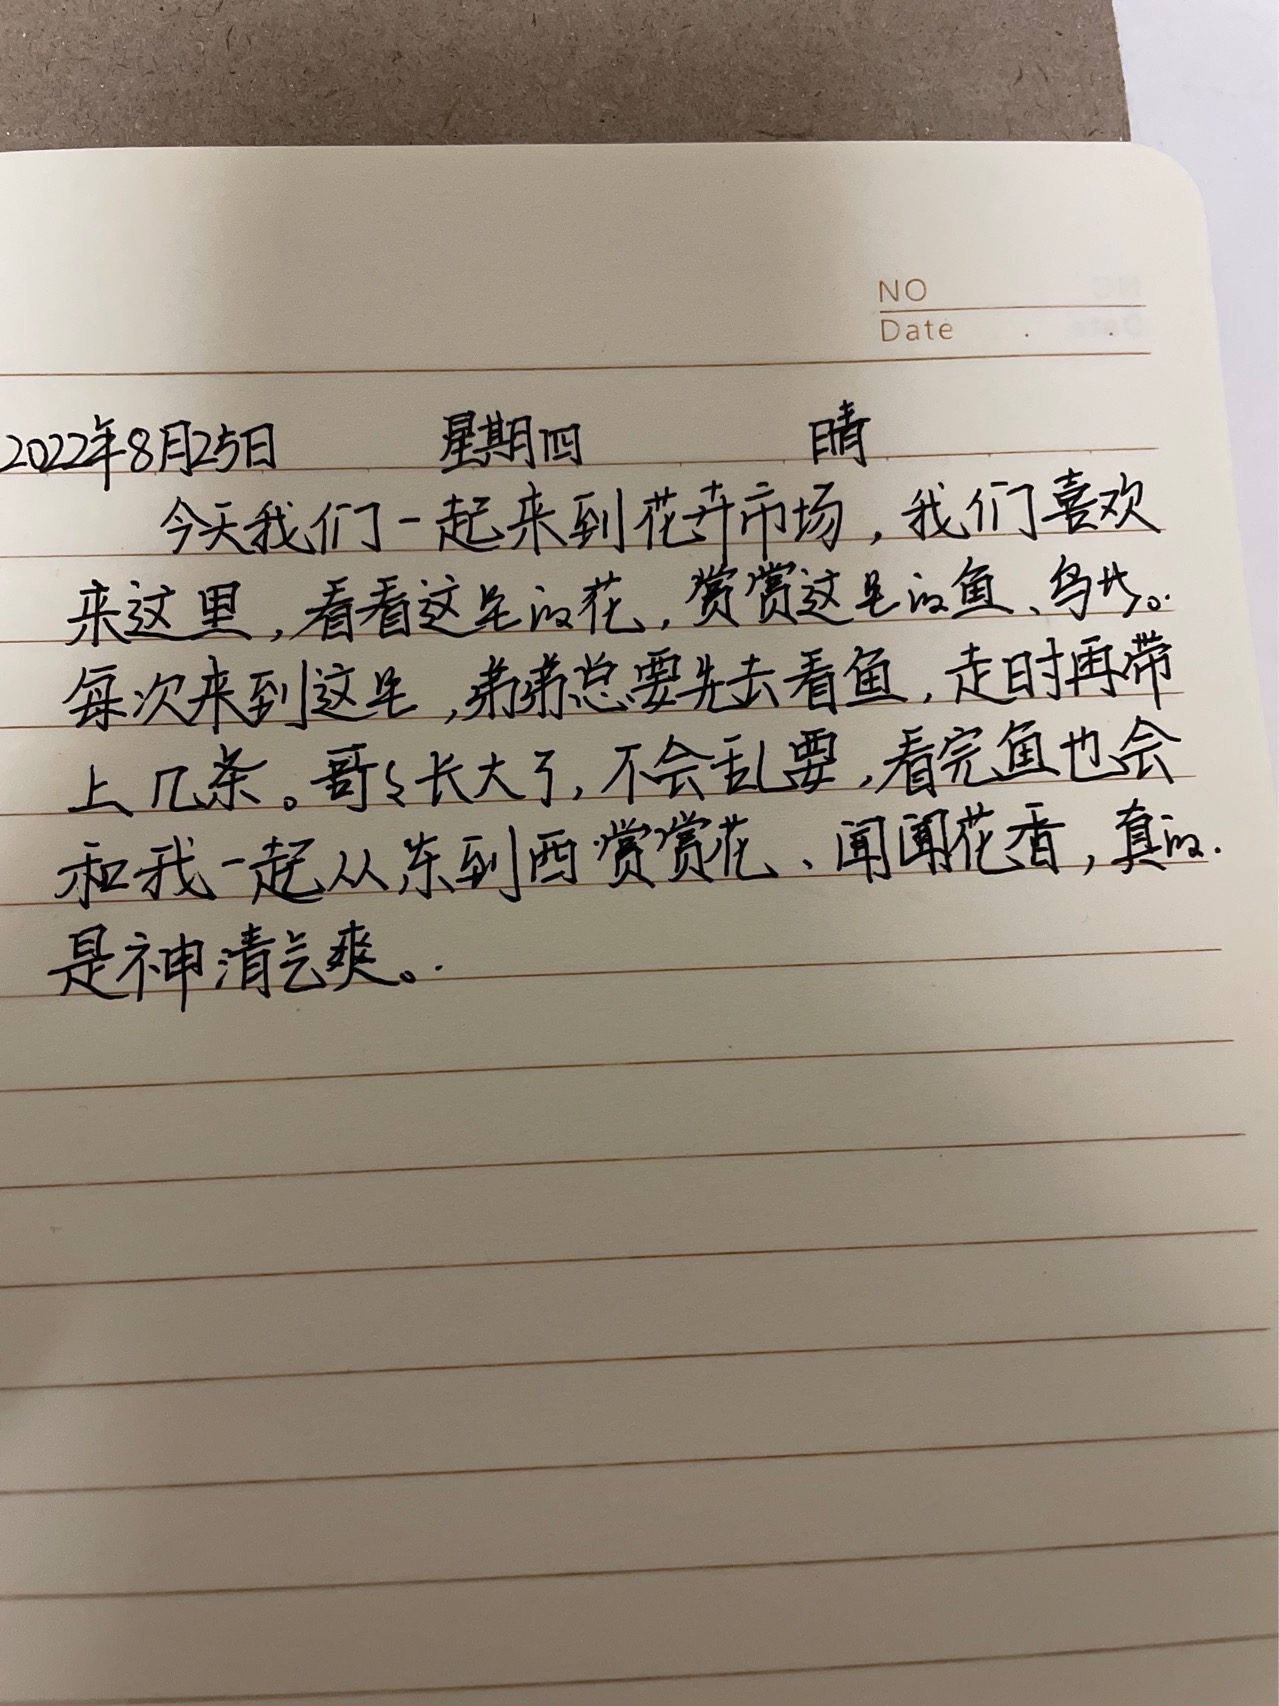 NO
Date . .
2022年8月25日 星期四 晴
今天我们一起来到花卉市场,我们喜欢
来这里,看看这里的花,赏赏这里的鱼、鸟。
每次来到这里,弟弟总要先去看鱼,走时再带
上几条。哥哥长大了,不会乱要,看完鱼也会
和我一起从东到西赏赏花、闻闻花香,真的
是神清气爽。